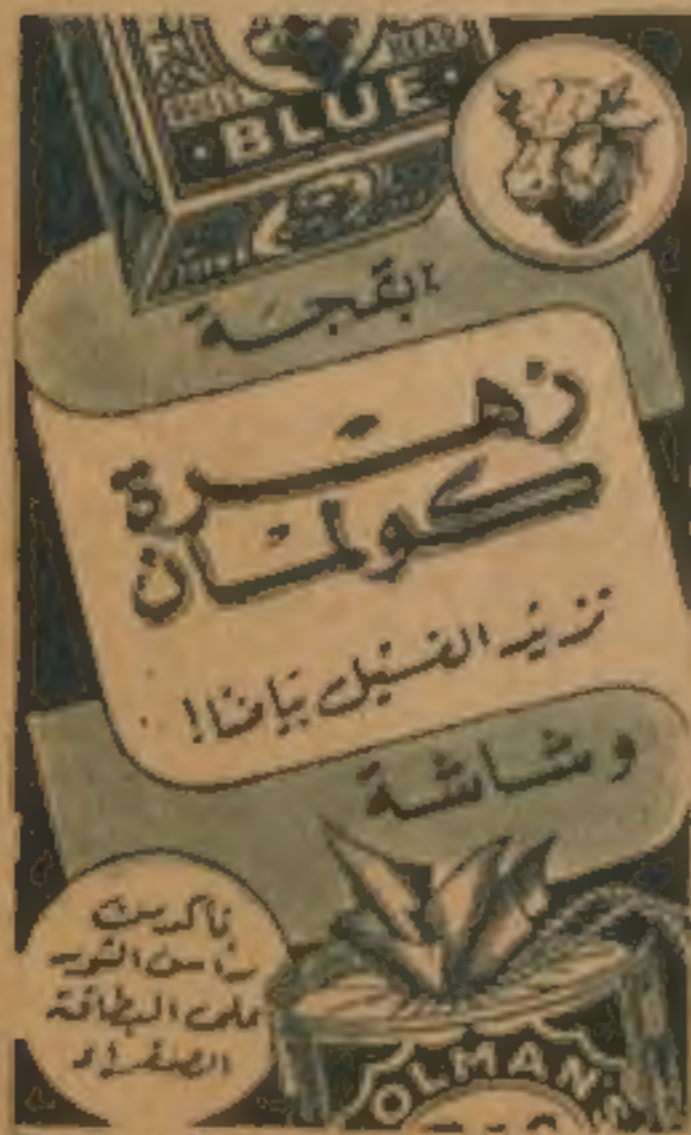 BLUE
ابقجة
زهرة
كولمان
تزيد الغسيل بياضا!
وشاشة
تأكد من
رأس الثور
على البطاقة
الصفراء
OLMAN'S